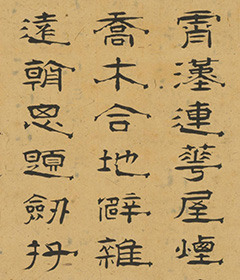 霄漢連華屋煙
喬木合地僻雜
遠翰思題劒丹